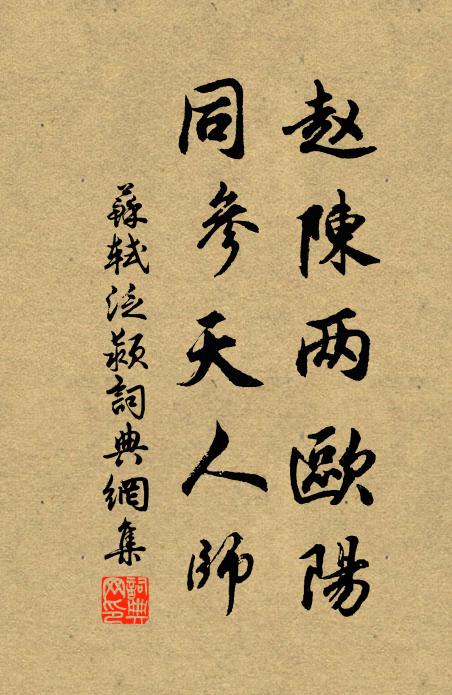 赵陳两歐陽
同參天人師
蘇軾泛潁詞典網集
詞典
网印